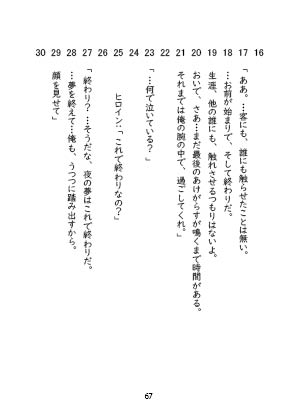 30 29 28 27 26 25 24 23 22 21 20 19 18 17 16
「ああ。…客にも、誰にも触らせたことは無い。
…お前が始まりで、そして終わりだ。
生涯、他の誰にも、触れさせるつもりはないよ。
おいで、さあ…まだ最後のあけがらすが鳴くまで時間がある。
それまでは俺の腕の中で、過ごしてくれ。」
「…何で泣いている？」
ヒロイン：「これで終わりなの？」
「終わり？…そうだな、夜の夢はこれで終わりだ。
…夢を終えて…俺も、うつつに踏み出すから。
顔を見せて」
67